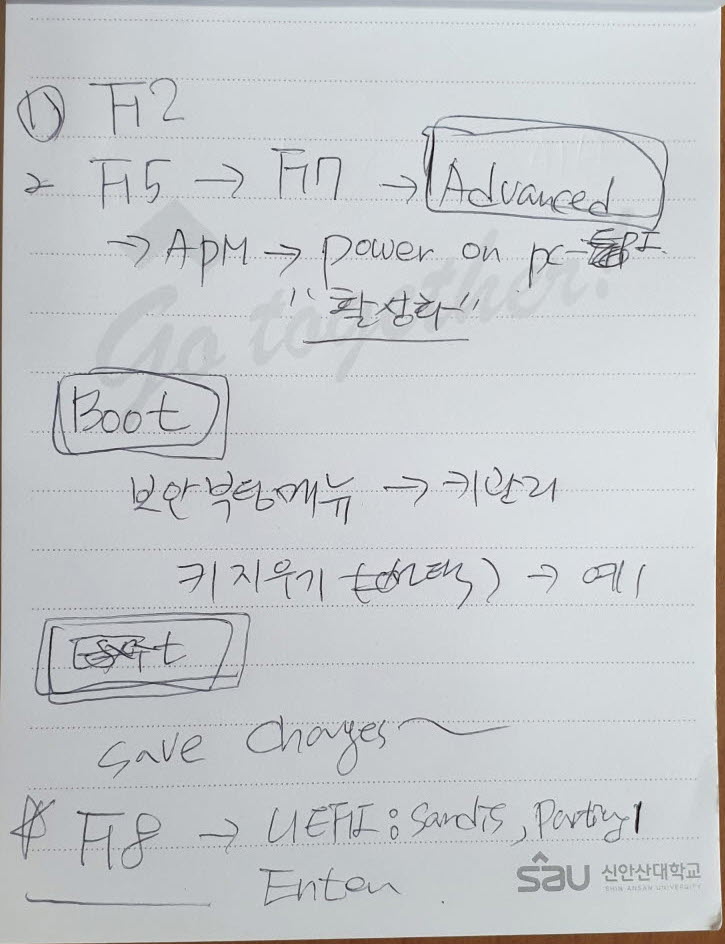 1) F2
2 F5 → F7 → Advanced
→ APM → power on pc-
"활성화"
Boot
보안부팅메뉴 → 키관리
키지우기 (선택) → 예
Exit
save changes
F8 → UEFI: Sandis, Parting1
Enter
Go together!
sau 신안산대학교
SHIN ANSAN UNIVERSITY